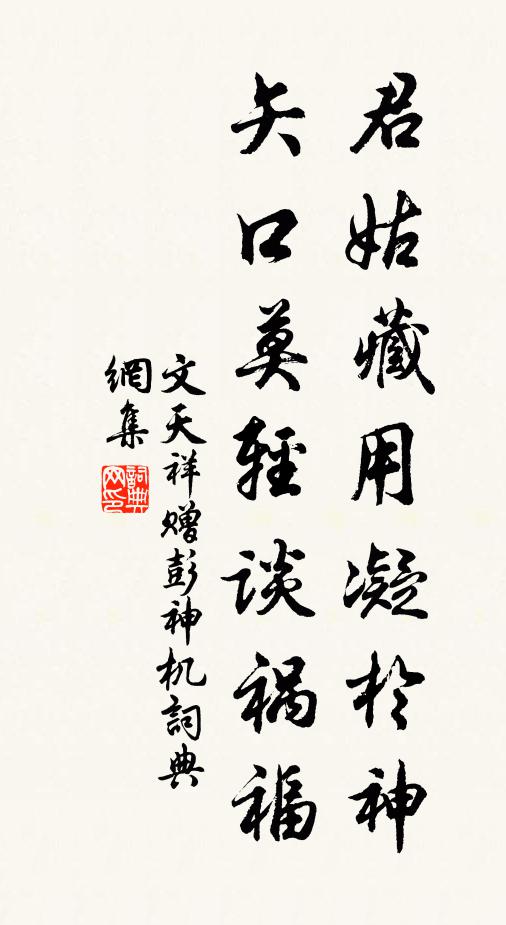 君姑藏用凝於神
矢口莫輕談禍福
文天祥赠彭神机詞典
網集
詞典
网印